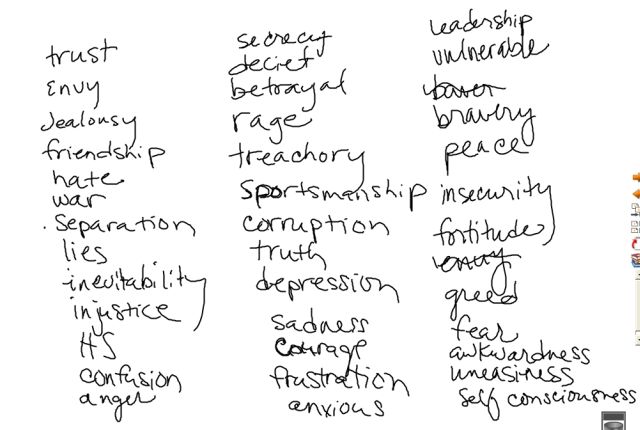 trust
envy
Jealousy
friendship
hate
war
separation
lies
inevitability
injustice
HS
confusion
anger
secrecy
deciet
betrayal
rage
treachory
sportsmanship
corruption
truth
depression
sadness
courage
frustration
anxious
leadership
vulnerable
bravery
peace
insecurity
fortitude
envy
greed
fear
awkwardness
uneasiness
self consciousness